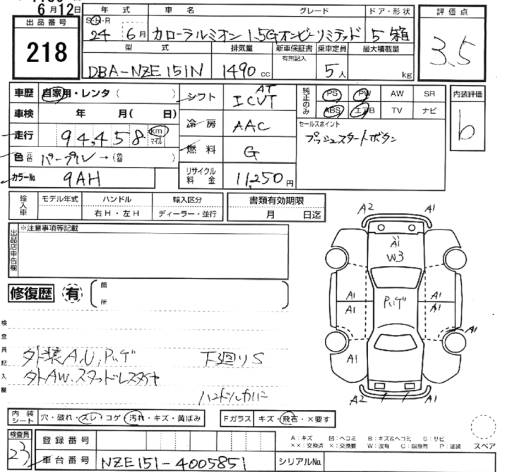 6月12日
出品番号
218
年式 車名 グレード ドア・形状
S・H・R
24年6月 カローラルミオン 1.5Gオンビーリミテッド 5 箱
型式 排気量 新車保証書 有無記入 乗車定員 最大積載量
DBA-NZE151N 1490cc 5人 kg
評価点
3.5
車歴 自家用・レンタ( )
車検 年 月( 日)
走行 94,458 km マイル
色 元色 パープル→(替色 )
カラーNo. 9AH
シフト AT ICVT
冷房 AAC
燃料 G
リサイクル料金 11,250円
純正のみ PS PW AW SR
ABS エアB TV ナビ
セールスポイント
プッシュスタートボタン
内装評価
b
輸入車 モデル年式 ハンドル 輸入区分
年 右H・左H ディーラー・並行
書類有効期限
月 日迄
出品店申告欄
※注意事項等記載
修復歴 有
箇所
検査員記入欄
外装A,U,ハゲ 下廻りS
外AW,スタッドレスタイヤ
ハンドルカバー
A2 A1
A1
W3
A1 A1
A1 ハゲ A1
A1 A1
A1
A2 A1
内装シート 穴・破れ・スレ・コゲ・汚れ・キズ・黄ばみ
Fガラス キズ・飛石・X要す
A:キズ U:ヘコミ B:キズ&ヘコミ S:サビ
スペア
検査員
23
登録番号
車台番号 NZE151-4005851
シリアルNo.